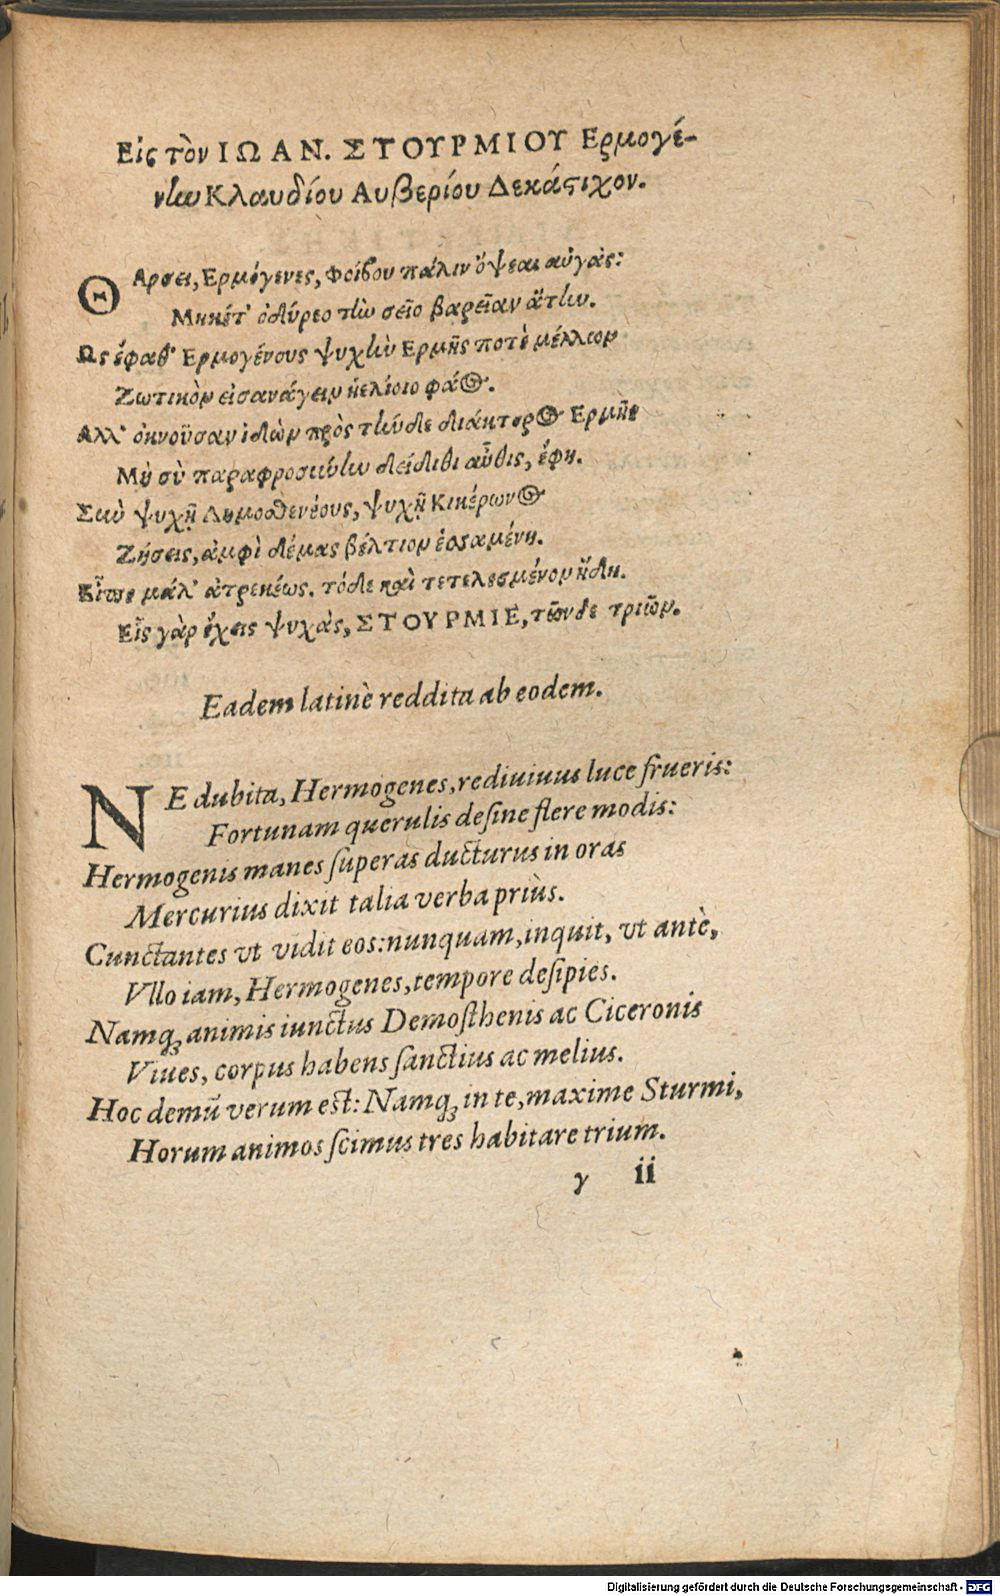 Εἰς τὸν ΙΩΑΝ. ΣΤΟΥΡΜΙΟΥ Ερμογέ-
νίω Κλαυδίου Αυβερίου Δεκάστιχον.
ΘΑρσει, Ερμόγενες, Φοίβου πάλιν ὄψεαι αὐγάς:
Μηκέτ' ὀδύρεο τὴν σεῖο βαρεῖαν ἄτην.
Ως ἔφαθ' Ερμογένους ψυχὴν Ερμῆς ποτὲ μέλλων
Ζωτικὸν εἰσανάγειν ἠελίοιο φάος.
Αλλ' ὀκνοῦσαν ἰδὼν πρὸς τήνδε διάκτορος Ερμῆς
Μὴ σὺ παραφροσύνην δείδιθι αὖθις, ἔφη.
Σὺν ψυχῇ Δημοσθενέους, ψυχῇ Κικέρωνος
Ζήσεις, ἀμφὶ δέμας βέλτιον ἑσσαμένη.
Εἶπε μάλ' ἀτρεκέως. τόδε καὶ τετελεσμένον ἤδη.
Εἷς γὰρ ἔχεις ψυχὰς, ΣΤΟΥΡΜΙΕ, τῶνδε τριῶν.
Eadem latinè reddita ab eodem.
NE dubita, Hermogenes, rediuiuus luce frueris:
Fortunam querulis desine flere modis:
Hermogenis manes superas ducturus in oras
Mercurius dixit talia verba priùs.
Cunctantes vt vidit eos: nunquam, inquit, vt antè,
Vllo iam, Hermogenes, tempore desipies.
Namq; animis iunctus Demosthenis ac Ciceronis
Viues, corpus habens sanctius ac melius.
Hoc demũ verum est: Namq; in te, maxime Sturmi,
Horum animos scimus tres habitare trium.
γ ii
Digitalisierung gefördert durch die Deutsche Forschungsgemeinschaft - DFG